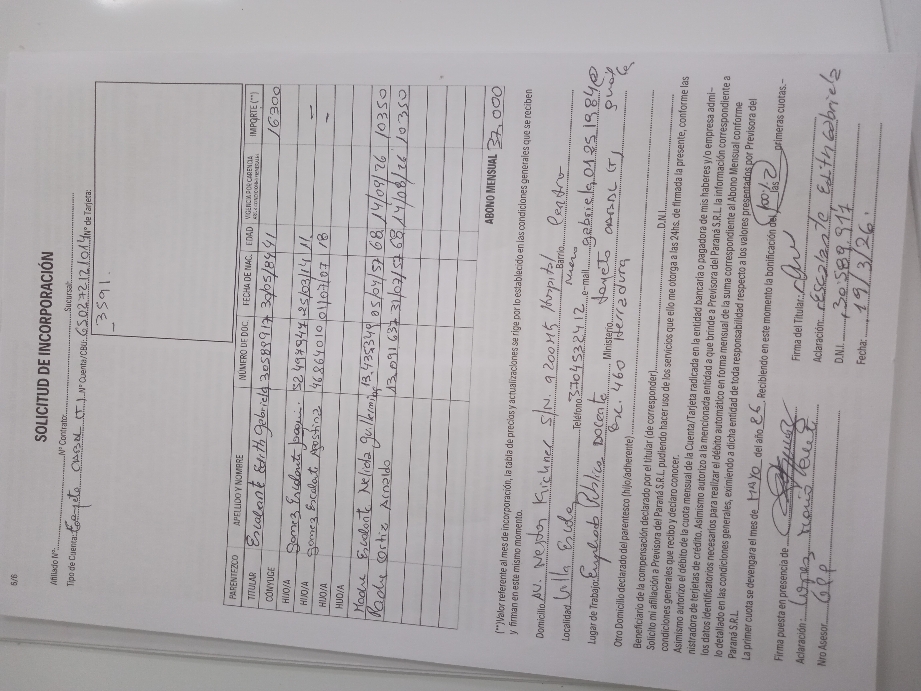 6/6
SOLICITUD DE INCORPORACIÓN
Afiliado Nº: Nº Contrato: Sucursal:
Tipo de Cuenta: Tarjeta (T) Nº Cuenta/CBU: Nº de Tarjeta:
- 3591.
PARENTEZCO APELLIDO Y NOMBRE NÚMERO DE DOC. FECHA DE NAC. EDAD IMPORTE (**)
TITULAR Escalante Edith Gabriela 30589917 41 16300
CÓNYUGE
HIJO/A Gomez Escalant 52497947 25/03/14 11 -
HIJO/A Gomez Escalante Agostina 46864010 01/07/07 18 -
HIJO/A
HIJO/A
Madre Escalante Nelida Guillermina 13.435349 05/04/57 68 14/09/26 10350
Padre Ortiz Arnoldo 13.091637 31/07/57 68 14/08/26 10350
ABONO MENSUAL 37.000
(**)Valor referente al mes de incorporación, la tabla de precios y actualizaciones se rige por lo establecido en las condiciones generales que se reciben
y firman en este mismo momento.
Domicilio AV. Nestor Kichner S/N. a 200 mts Hospital Barrio Centro
Localidad Villa Teléfono 3704532412 e-mail gabriela01051984@
Lugar de Trabajo Empleado Publico Docente Ministerio Tarjeta (T) gmail
Otro Domicilio declarado del parentesco (hijo/adherente) 460 Herradura
Beneficiario de la compensación declarado por el titular (de corresponder) D.N.I.
Solicito mi afiliación a Previsora del Paraná S.R.L. pudiendo hacer uso de los servicios que ello me otorga a las 24hs. de firmada la presente, conforme las
condiciones generales que recibo y declaro conocer.
Asimismo autorizo el débito de la cuota mensual de la Cuenta/Tarjeta radicada en la entidad bancaria o pagadora de mis haberes y/o empresa admi-
nistradora de terjetas de crédito. Asimismo autorizo a la mencionada entidad a que brinde a Previsora del Paraná S.R.L. la información correspondiente a
los datos identificatorios necesarios para realizar el débito automático en forma mensual de la suma correspondiente al Abono Mensual conforme
lo detallado en las condiciones generales, eximiendo a dicha entidad de toda responsabilidad respecto a los valores presentados por Previsora del
Paraná S.R.L.
La primer cuota se devengara el mes de Mayo del año 26. Recibiendo en este momento bonificación de las 2 primeras cuotas.-
Firma puesta en presencia de Firma del Titular:
Aclaración: Lopez Aclaración: Escalante Edith Gabriela
Nro Asesor D.N.I. 30.589.917
Fecha: 19/3/26.